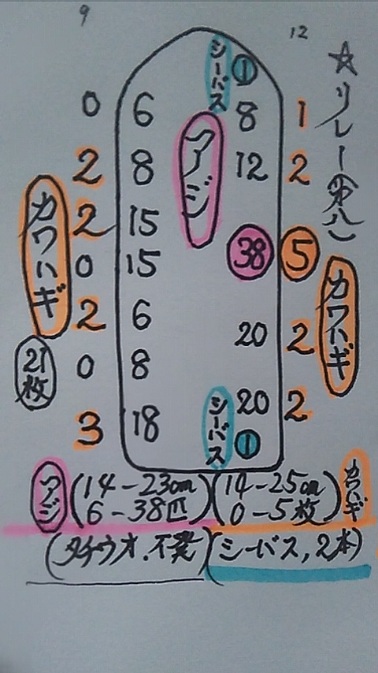 9
12
☆リレー(第八)
シーバス ①
0 6 8 1
アジ
2 8 12 2
カワハギ
2 15
0 15 38 5
カワハギ
2 6 20 2
21枚
0 8
シーバス ①
3 18 20 2
アジ (14-23cm 6-38匹) (14-25cm 0-5枚) カワハギ
(タチウオ.不発) (シーバス,2本)